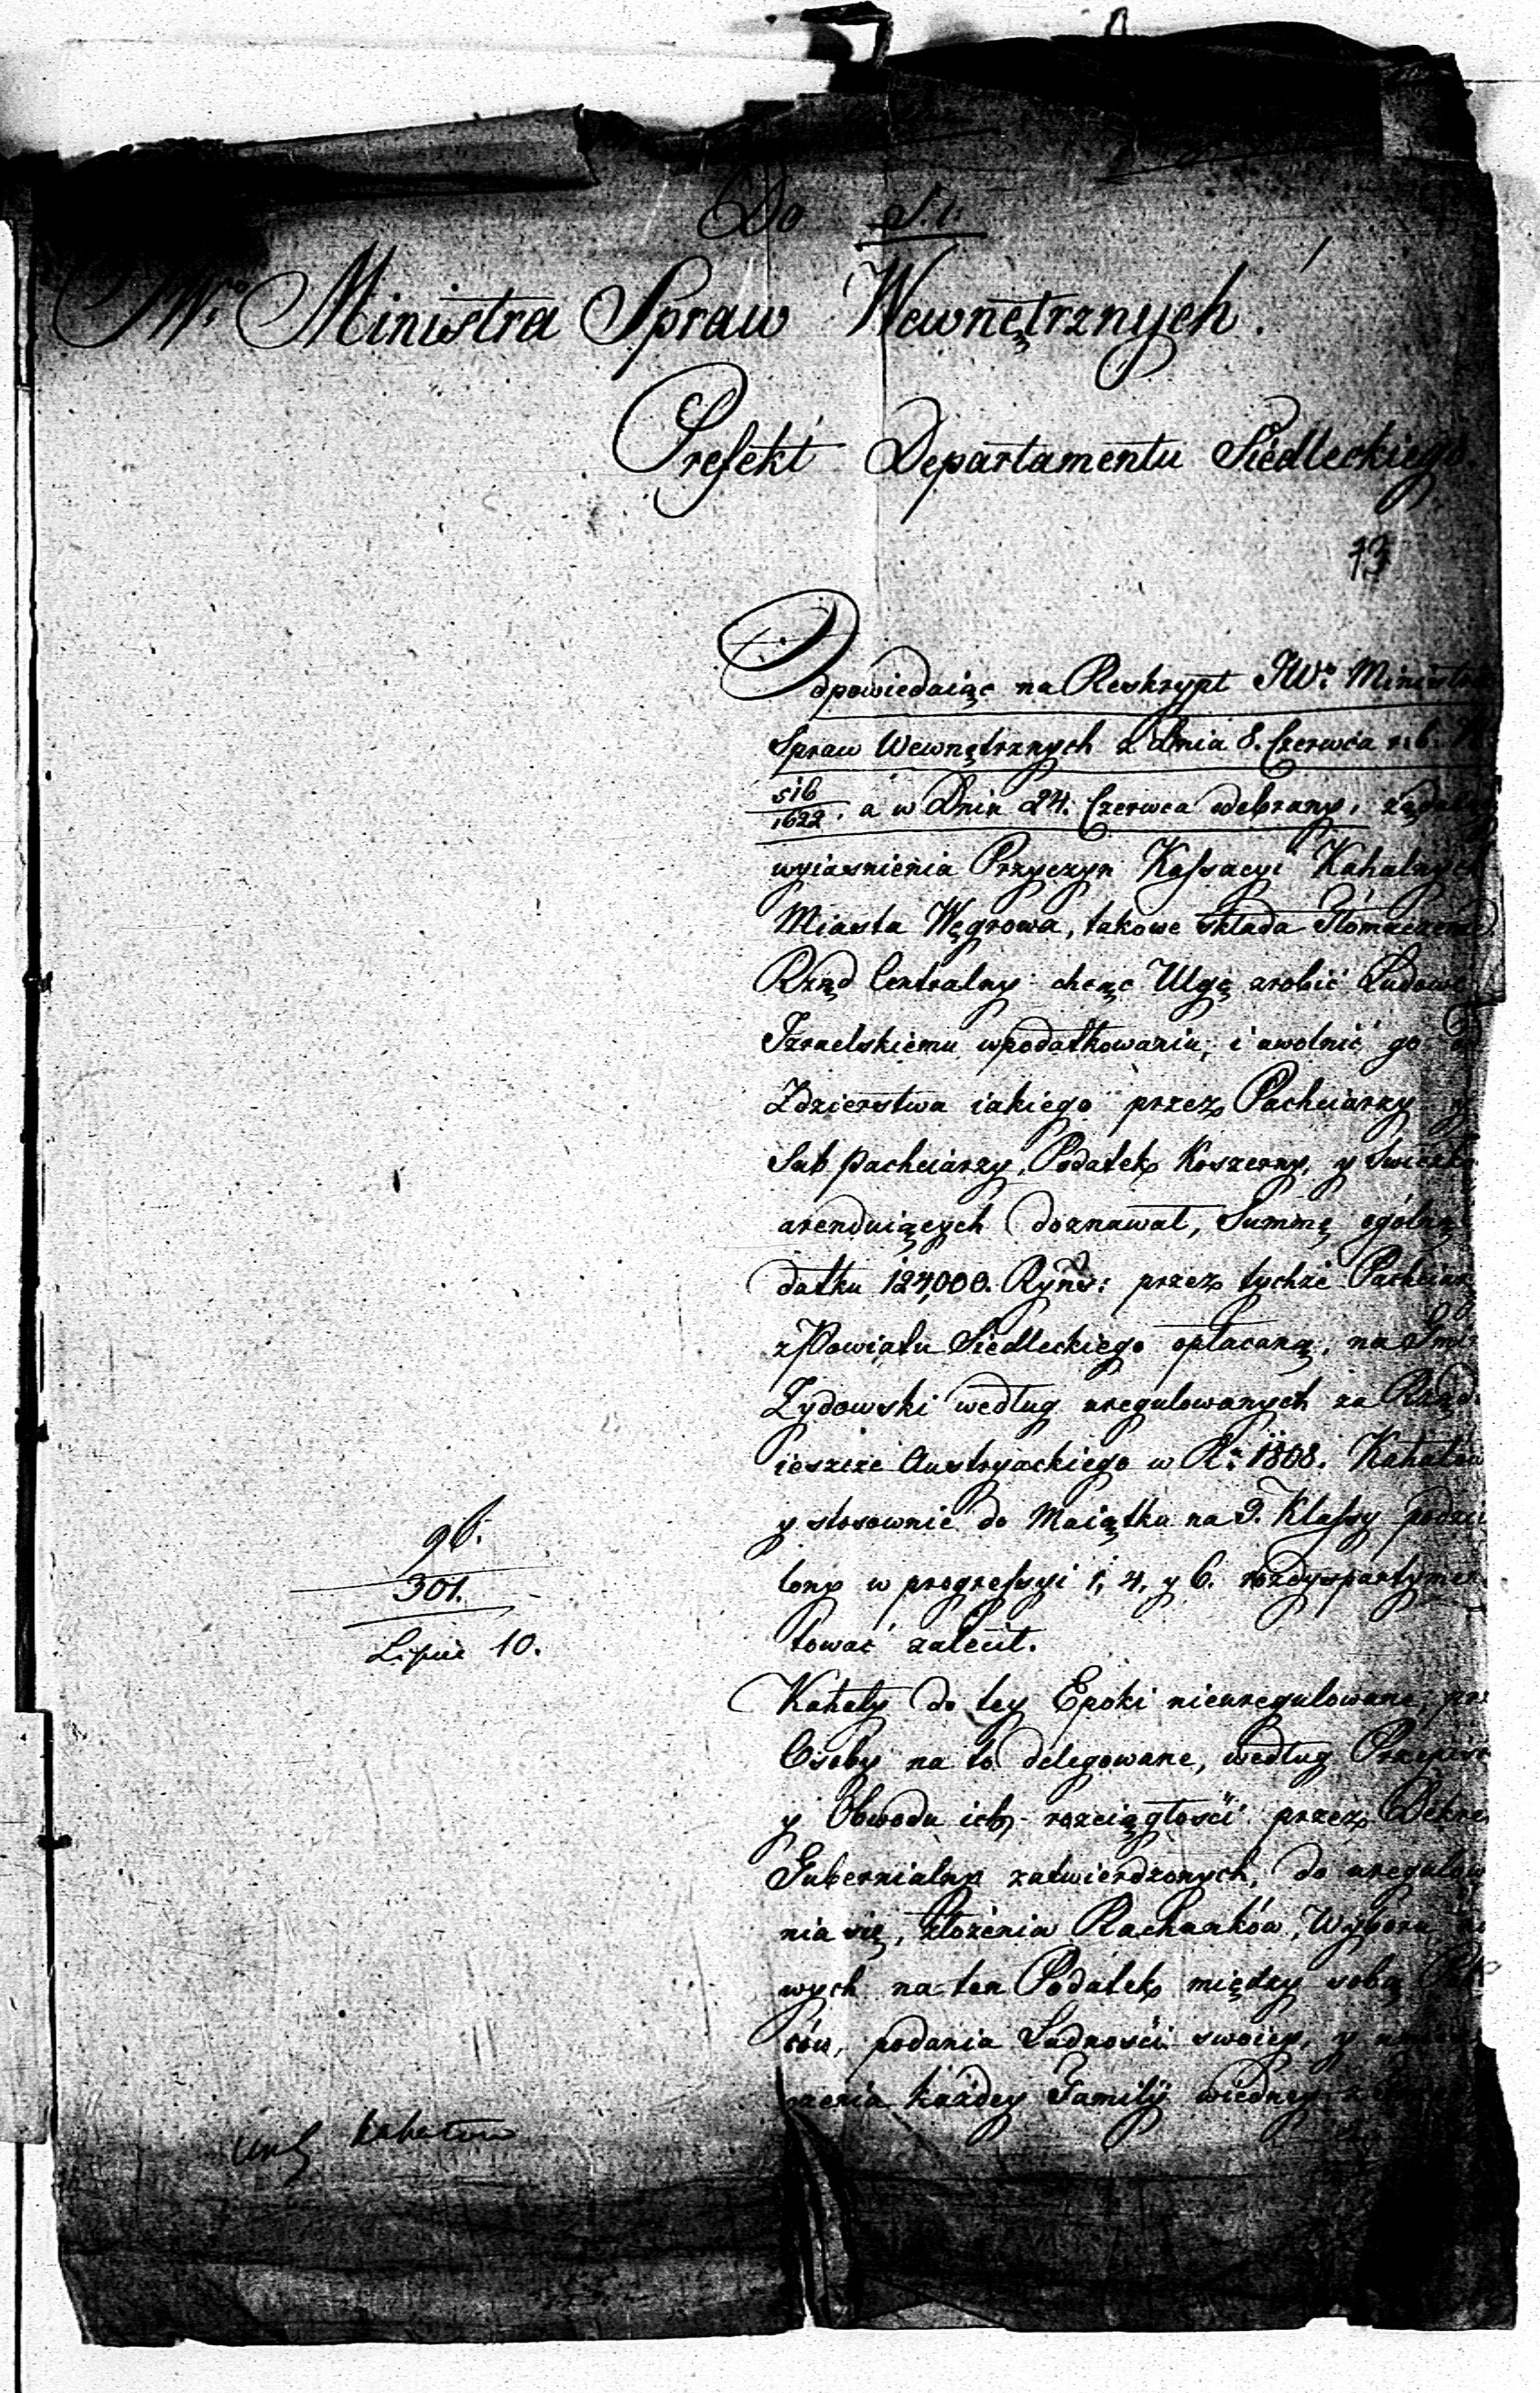 Do
JWo Ministra Spraw Wewnętrznych.
Prefekt Departamentu Siedleckiego.
13
Odpowiedaiąc na Reskrypt JWo Ministra
Spraw Wewnętrznych z Dnia 8. Czerwca r: b:
516/1622. a w Dniu 24. Czerwca odebrany,
wyiasnienia Przyczyn Kassacyi Kahalnych
Miasta Węgrowa, takowe składa Tłomaczenie
Rząd Centralny chcąc Ulgę zrobić Ludowi
Izraelskiemu wpodatkowaniu, i uwolnić go od
Zdzierstwa iakiego przez Pachciarzy y
Sub pachciarzy, Podatek Koszerny, y Swieczko
arenduiących doznawał, Summę ogólną
datku 124,000. Ryńs: przez tychże Pachciar
z Powiatu Siedleckiego opłacaną, na Gmin
Zydowski według uregulowanych za Rządu
ieszcze Austryackiego w R: 1808. Kahałow
y stosownie do Maiątku na 9. Klassy podzie
lony w progressyi 1, 4, y 6. rozdyspartymen
tować zalecił.
Kahały do tey Epoki nieuregulowane, prz
Osoby na to delegowane, według Przepiso
y Obwodu ich rozciągłości przez Dekre
Gubernialny zatwierdzonych, do uregulowa
nia się, złożenia Rachunków, Wyboru
wych na ten Podatek między sobą
ców, podania Ludności swoiey, y
czenia każdey Familÿ wiedney z
96.
301.
Lipiec 10.
Kahałow